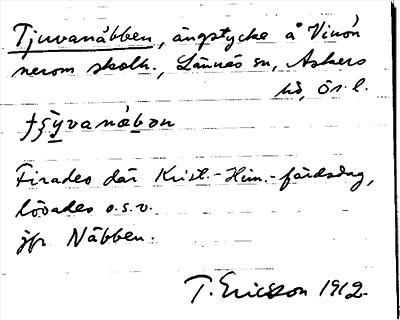 Tjuvanäbben, ängstycke å Vinön
nerom skolh., Lännäs sn, Askers
hd, Ör. l.
Firades där Krist.-Him.-färdsdag,
lövades o.s.v.
jfr Näbben.
T. Ericsson 1912